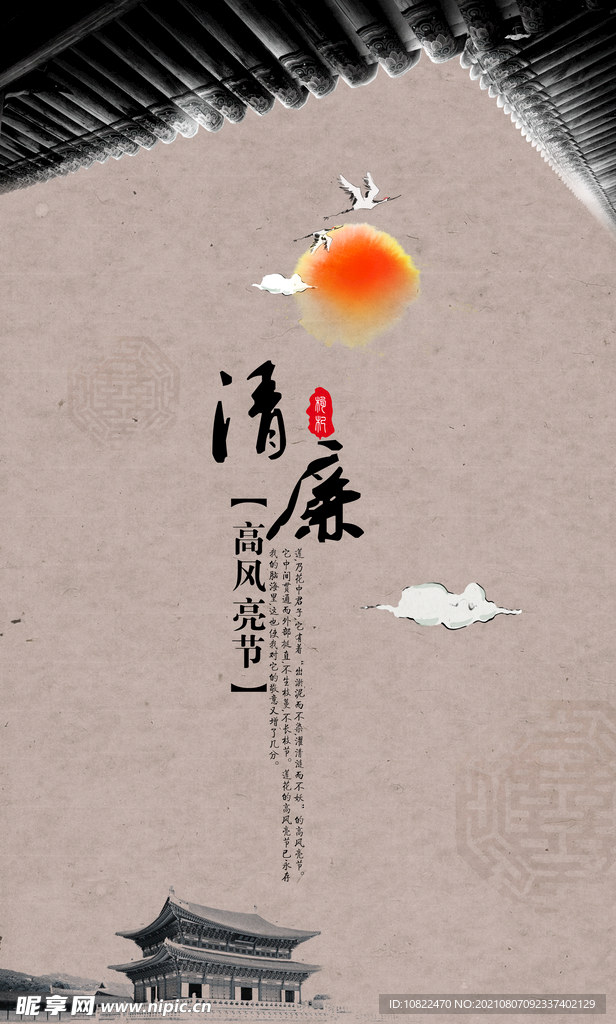 清廉
【高风亮节】
莲,乃花中君子,它有着“出淤泥而不染,濯清涟而不妖”的高风亮节。
它中间贯通而外部挺直,不生枝蔓,不长枝节。莲花的高风亮节已永存
我的脑海里,这也使我对它的敬意又增了几分。
昵享网 www.nipic.cn
ID:10822470 NO:20210807092337402129